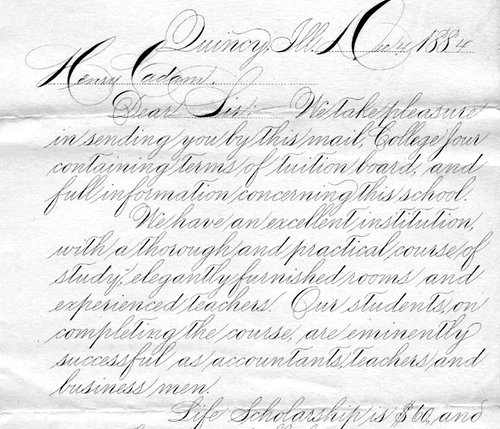 Quincy, Ill., Nov 4, 1884
Henry Cadam.
Dear Sir: We take pleasure
in sending you by this mail, College Jour
containing terms of tuition board, and
full information concerning this school.
We have an excellent institution,
with a thorough and practical course of
study, elegantly furnished rooms and
experienced teachers. Our students, on
completing the course, are eminently
successful as accountants, teachers and
business men
Life Scholarship is $60, and